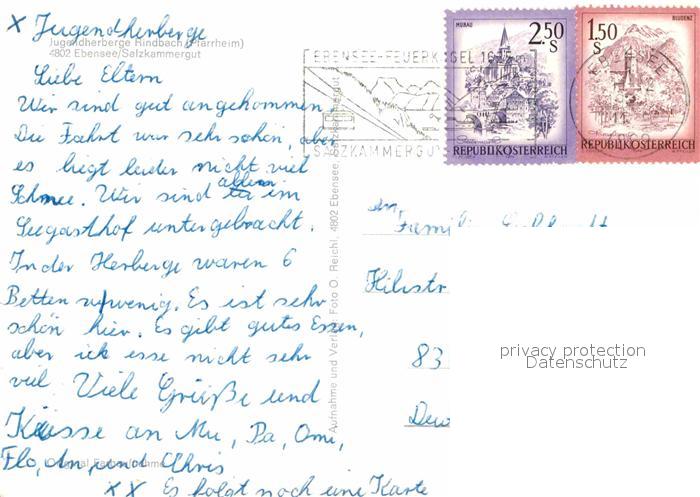 x Jugendherberge
Jugendherberge Rindbach (Pfarrheim)
4802 Ebensee/Salzkammergut
Liebe Eltern
Wir sind gut angekommen.
Die Fahrt war sehr schön, aber
es liegt leider nicht viel
Schnee. Wir sind allein im
Seegasthof untergebracht.
In der Herberge waren 6
Betten zu wenig. Es ist sehr
schön hier. Es gibt gutes Essen,
aber ich esse nicht sehr
viel Viele Grüße und
Küsse an Mu, Pa, Omi,
Flo, An, und Chris
xx Es folgt noch eine Karte
Aufnahme und Verlag: Foto O. Reichl, 4802 Ebensee, Salzkammergut
EBENSEE-FEUERKOGEL
SALZKAMMERGUT
MURAU
2.50
S
REPUBLIK ÖSTERREICH
BLUDENZ
1.50
S
REPUBLIK ÖSTERREICH
EBENSEE
An
Hilustr
83
privacy protection
Datenschutz